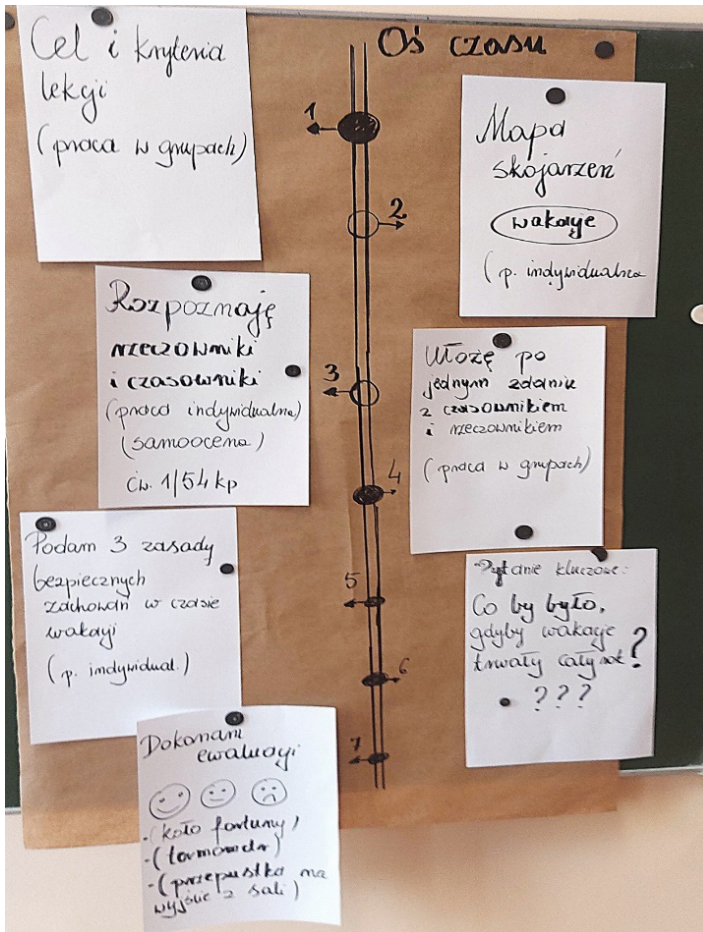 Oś czasu
1
Cel i kryteria
lekcji
(praca w grupach)
2
Mapa
skojarzeń
wakacje
(p. indywidualna
3
Rozpoznaję
rzeczowniki
i czasowniki
(praca indywidualna)
(samoocena)
ćw. 1/54 kp
4
Ułożę po
jednym zdaniu
z czasownikiem
i rzeczownikiem
(praca w grupach)
5
Podam 3 zasady
bezpiecznych
zachowań w czasie
wakacji
(p. indywidual.)
6
Pytanie kluczowe:
Co by było,
gdyby wakacje
trwały cały rok?
???
7
Dokonam
ewaluacji
-(koło fortuny)
-(
-(przepustka na
wyjście z sali)